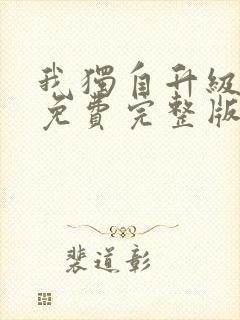 我獨自升級
免費完整版
裴道彰